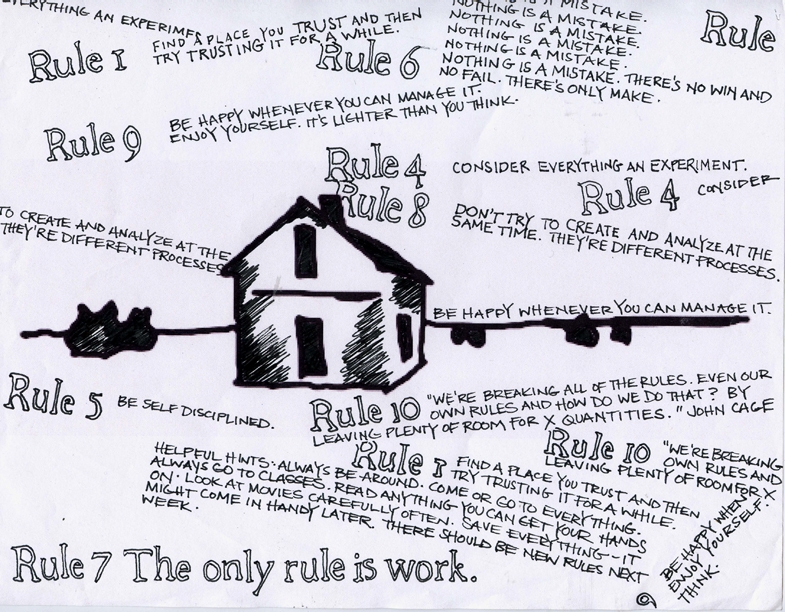 EVERYTHING AN EXPERIMENT
Rule 1
FIND A PLACE YOU TRUST AND THEN
TRY TRUSTING IT FOR A WHILE.
Rule 6
IS A MISTAKE.
NOTHING IS A MISTAKE.
NOTHING IS A MISTAKE.
NOTHING IS A MISTAKE.
NOTHING IS A MISTAKE.
NOTHING IS A MISTAKE. THERE'S NO WIN AND
NO FAIL. THERE'S ONLY MAKE.
Rule
Rule 9
BE HAPPY WHENEVER YOU CAN MANAGE IT.
ENJOY YOURSELF. IT'S LIGHTER THAN YOU THINK.
Rule 4
CONSIDER EVERYTHING AN EXPERIMENT.
Rule 4 CONSIDER
Rule 8
DON'T TRY TO CREATE AND ANALYZE AT THE
SAME TIME. THEY'RE DIFFERENT PROCESSES.
TO CREATE AND ANALYZE AT THE
THEY'RE DIFFERENT PROCESSES
BE HAPPY WHENEVER YOU CAN MANAGE IT.
Rule 5 BE SELF DISCIPLINED.
Rule 10
"WE'RE BREAKING ALL OF THE RULES. EVEN OUR
OWN RULES AND HOW DO WE DO THAT? BY
LEAVING PLENTY OF ROOM FOR X QUANTITIES." JOHN CAGE
Rule 10
"WE'RE BREAKING
OWN RULES AND
LEAVING PLENTY OF ROOM FOR X
Rule 1
FIND A PLACE YOU TRUST AND THEN
TRY TRUSTING IT FOR A WHILE.
HELPFUL HINTS: ALWAYS BE AROUND. COME OR GO TO EVERYTHING.
ALWAYS GO TO CLASSES. READ ANYTHING YOU CAN GET YOUR HANDS
ON. LOOK AT MOVIES CAREFULLY OFTEN. SAVE EVERYTHING - IT
MIGHT COME IN HANDY LATER. THERE SHOULD BE NEW RULES NEXT
WEEK.
BE HAPPY WHEN
ENJOY YOURSELF.
THINK.
Rule 7 The only rule is work.